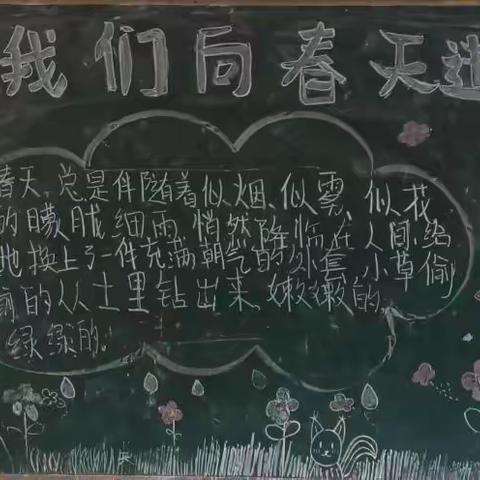 我们向春天进
春天,总是伴随着似烟、似雾、似花
的朦胧细雨,悄然降临在人间,给
地换上了一件充满朝气的外套,小草偷
偷的从土里钻出来,嫩嫩的,
绿绿的。